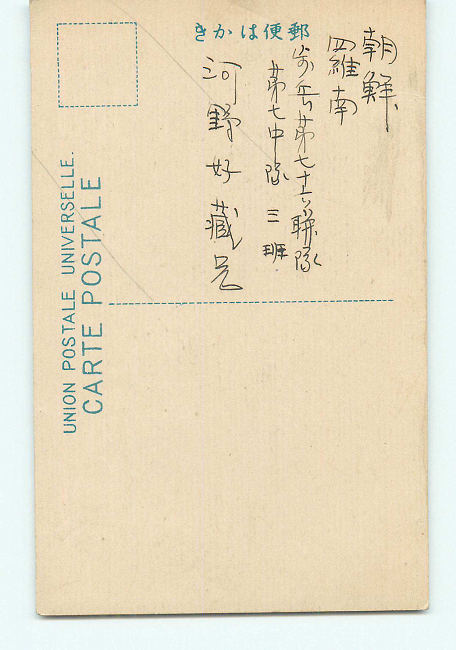 郵便はかき
朝鮮
羅南
歩兵第七十六聯隊
第七中隊 三班
河野好藏兄
UNION POSTALE UNIVERSELLE.
CARTE POSTALE